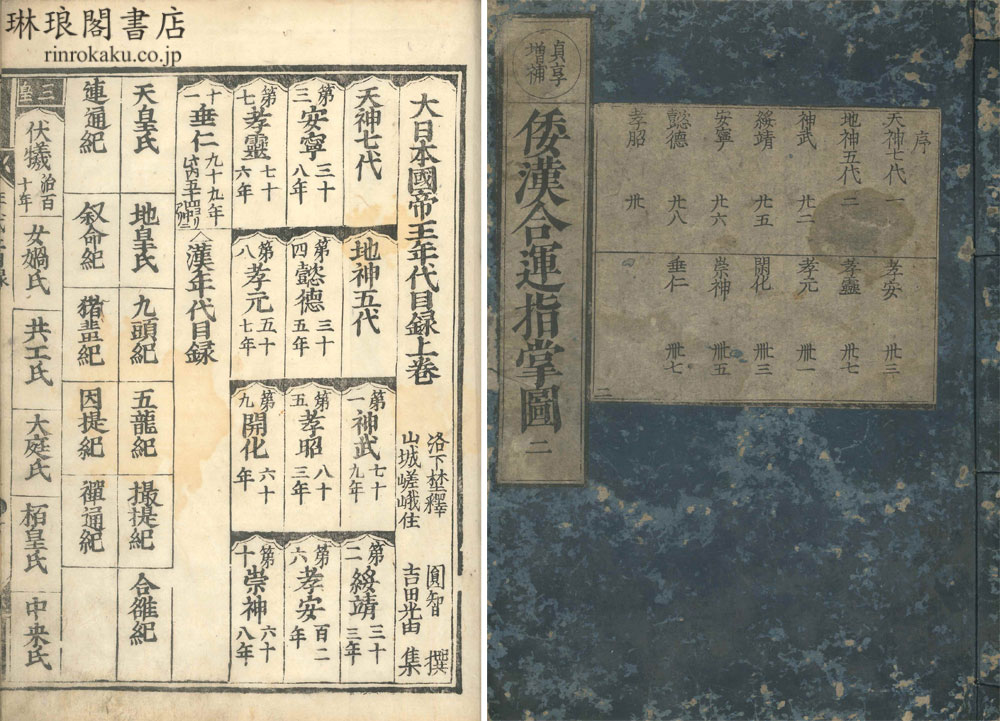 琳琅閣書店
rinrokaku.co.jp
大日本國帝王年代目録上巻
洛下埜釋 圓智 撰
山城嵯峨住 吉田光由 集
天神七代
地神五代
第一 神武 七十九年
第二 綏靖 三十三年
第三 安寧 三十八年
第四 懿德 三十五年
第五 孝昭 八十三年
第六 孝安 百二年
第七 孝靈 七十六年
第八 孝元 五十七年
第九 開化 六十年
第十 崇神 六十八年
十一 垂仁 九十九年
漢年代目録
天皇氏
地皇氏
九頭紀
五龍紀
攝提紀
合雒紀
連通紀
叙命紀
因提紀
禪通紀
三皇
伏犧 治百十年
女媧氏
共工氏
大庭氏
栢皇氏
中央氏
貞享
増補
倭漢合運指掌圖 二
序
天神七代 一
地神五代 二
神武 廿二
綏靖 廿五
安寧 廿六
懿德 廿八
孝昭 卅
孝安 卅三
孝靈 卅七
孝元 卌一
開化 卌三
崇神 卌五
垂仁 卌七
二